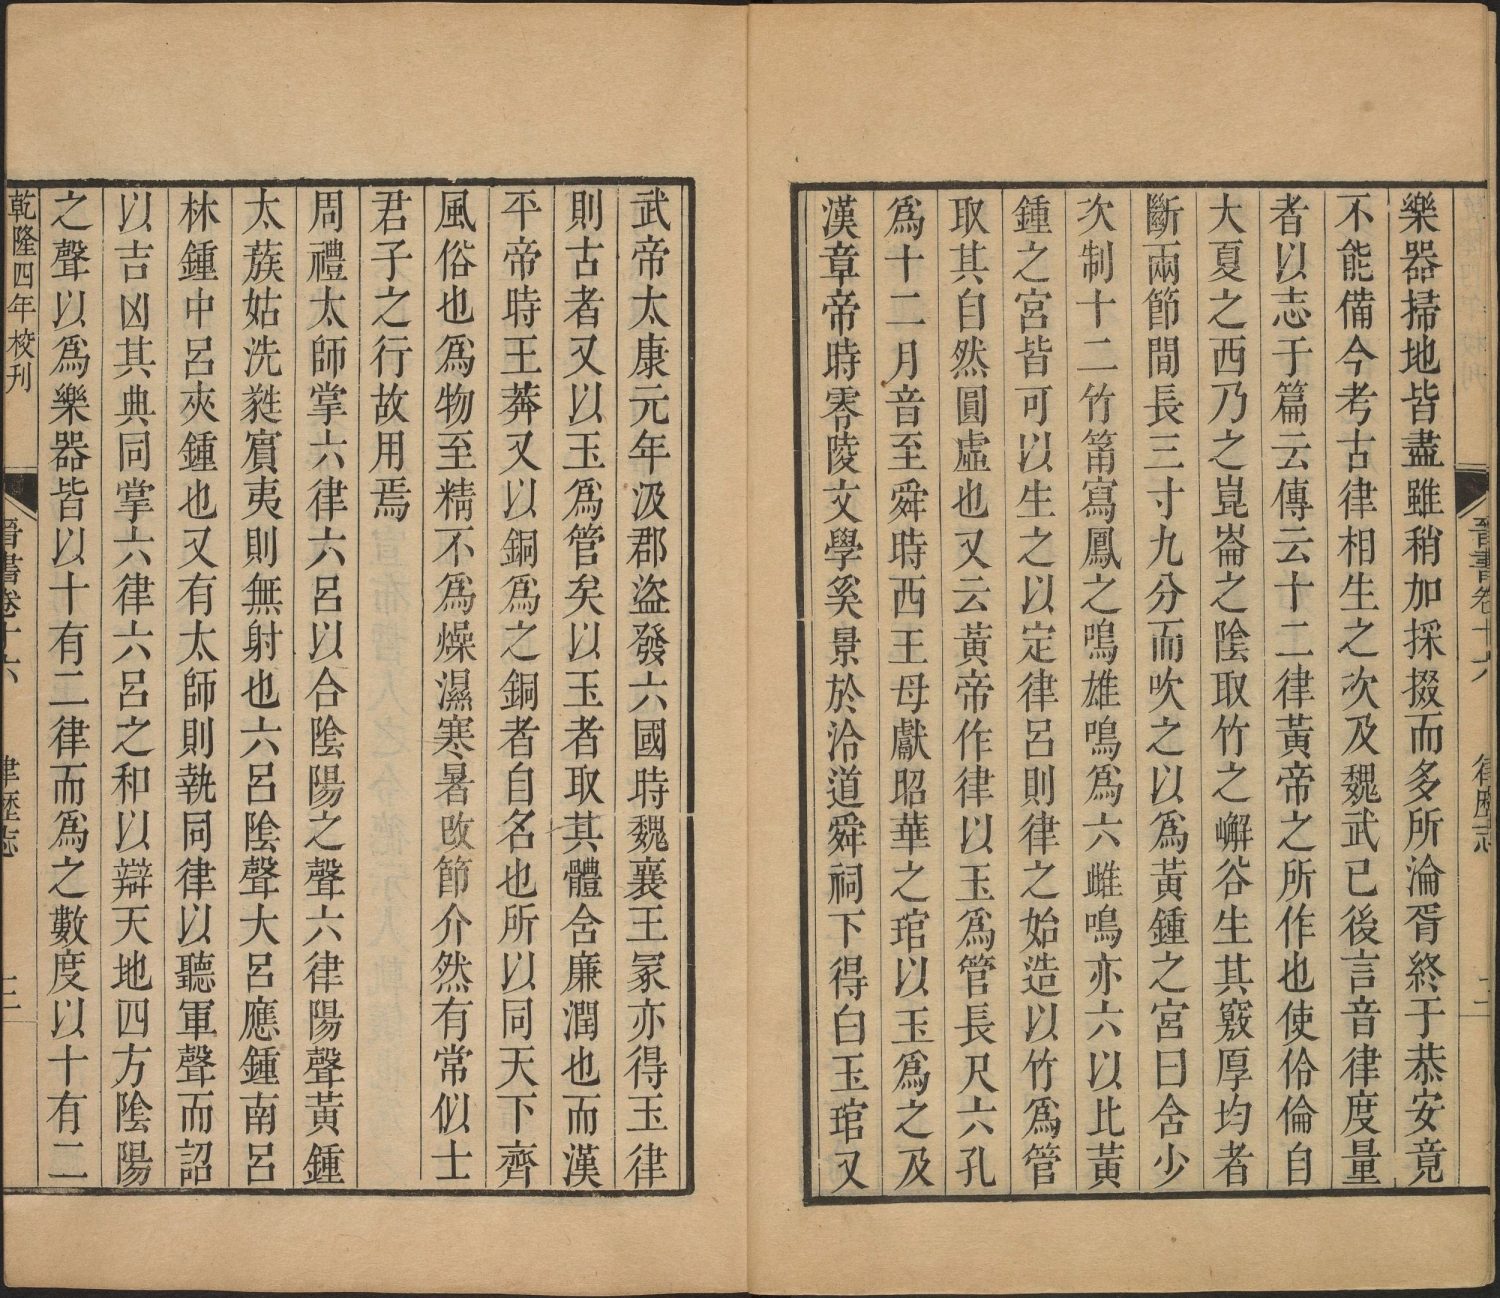 樂器掃地皆盡雖稍加採掇而多所淪胥終于恭安竟
不能備今考古律相生之次及魏武已後言音律度量
者以志于篇云傳云十二律黃帝之所作也使伶倫自
大夏之西乃之崑崙之陰取竹之嶰谷生其竅厚均者
斷兩節間長三寸九分而吹之以爲黃鍾之宮曰含少
次制十二竹筩寫鳳之鳴雄鳴爲六雌鳴亦六以比黃
鍾之宮皆可以生之以定律呂則律之始造以竹爲管
取其自然圓虛也又云黃帝作律以玉爲管長尺六孔
爲十二月音至舜時西王母獻昭華之琯以玉爲之及
漢章帝時零陵文學奚景於泠道舜祠下得白玉琯又
武帝太康元年汲郡盜發六國時魏襄王冢亦得玉律
則古者又以玉爲管矣以玉者取其體含廉潤也而漢
平帝時王莽又以銅爲之銅者自名也所以同天下齊
風俗也爲物至精不爲燥濕寒暑改節介然有常似士
君子之行故用焉
周禮太師掌六律六呂以合陰陽之聲六律陽聲黃鍾
太蔟姑洗蕤賓夷則無射也六呂陰聲大呂應鍾南呂
林鍾中呂夾鍾也又有太師則執同律以聽軍聲而詔
以吉凶其典同掌六律六呂之和以辯天地四方陰陽
之聲以爲樂器皆以十有二律而爲之數度以十有二
乾隆四年校刊
晉書卷十六
律歷志
三